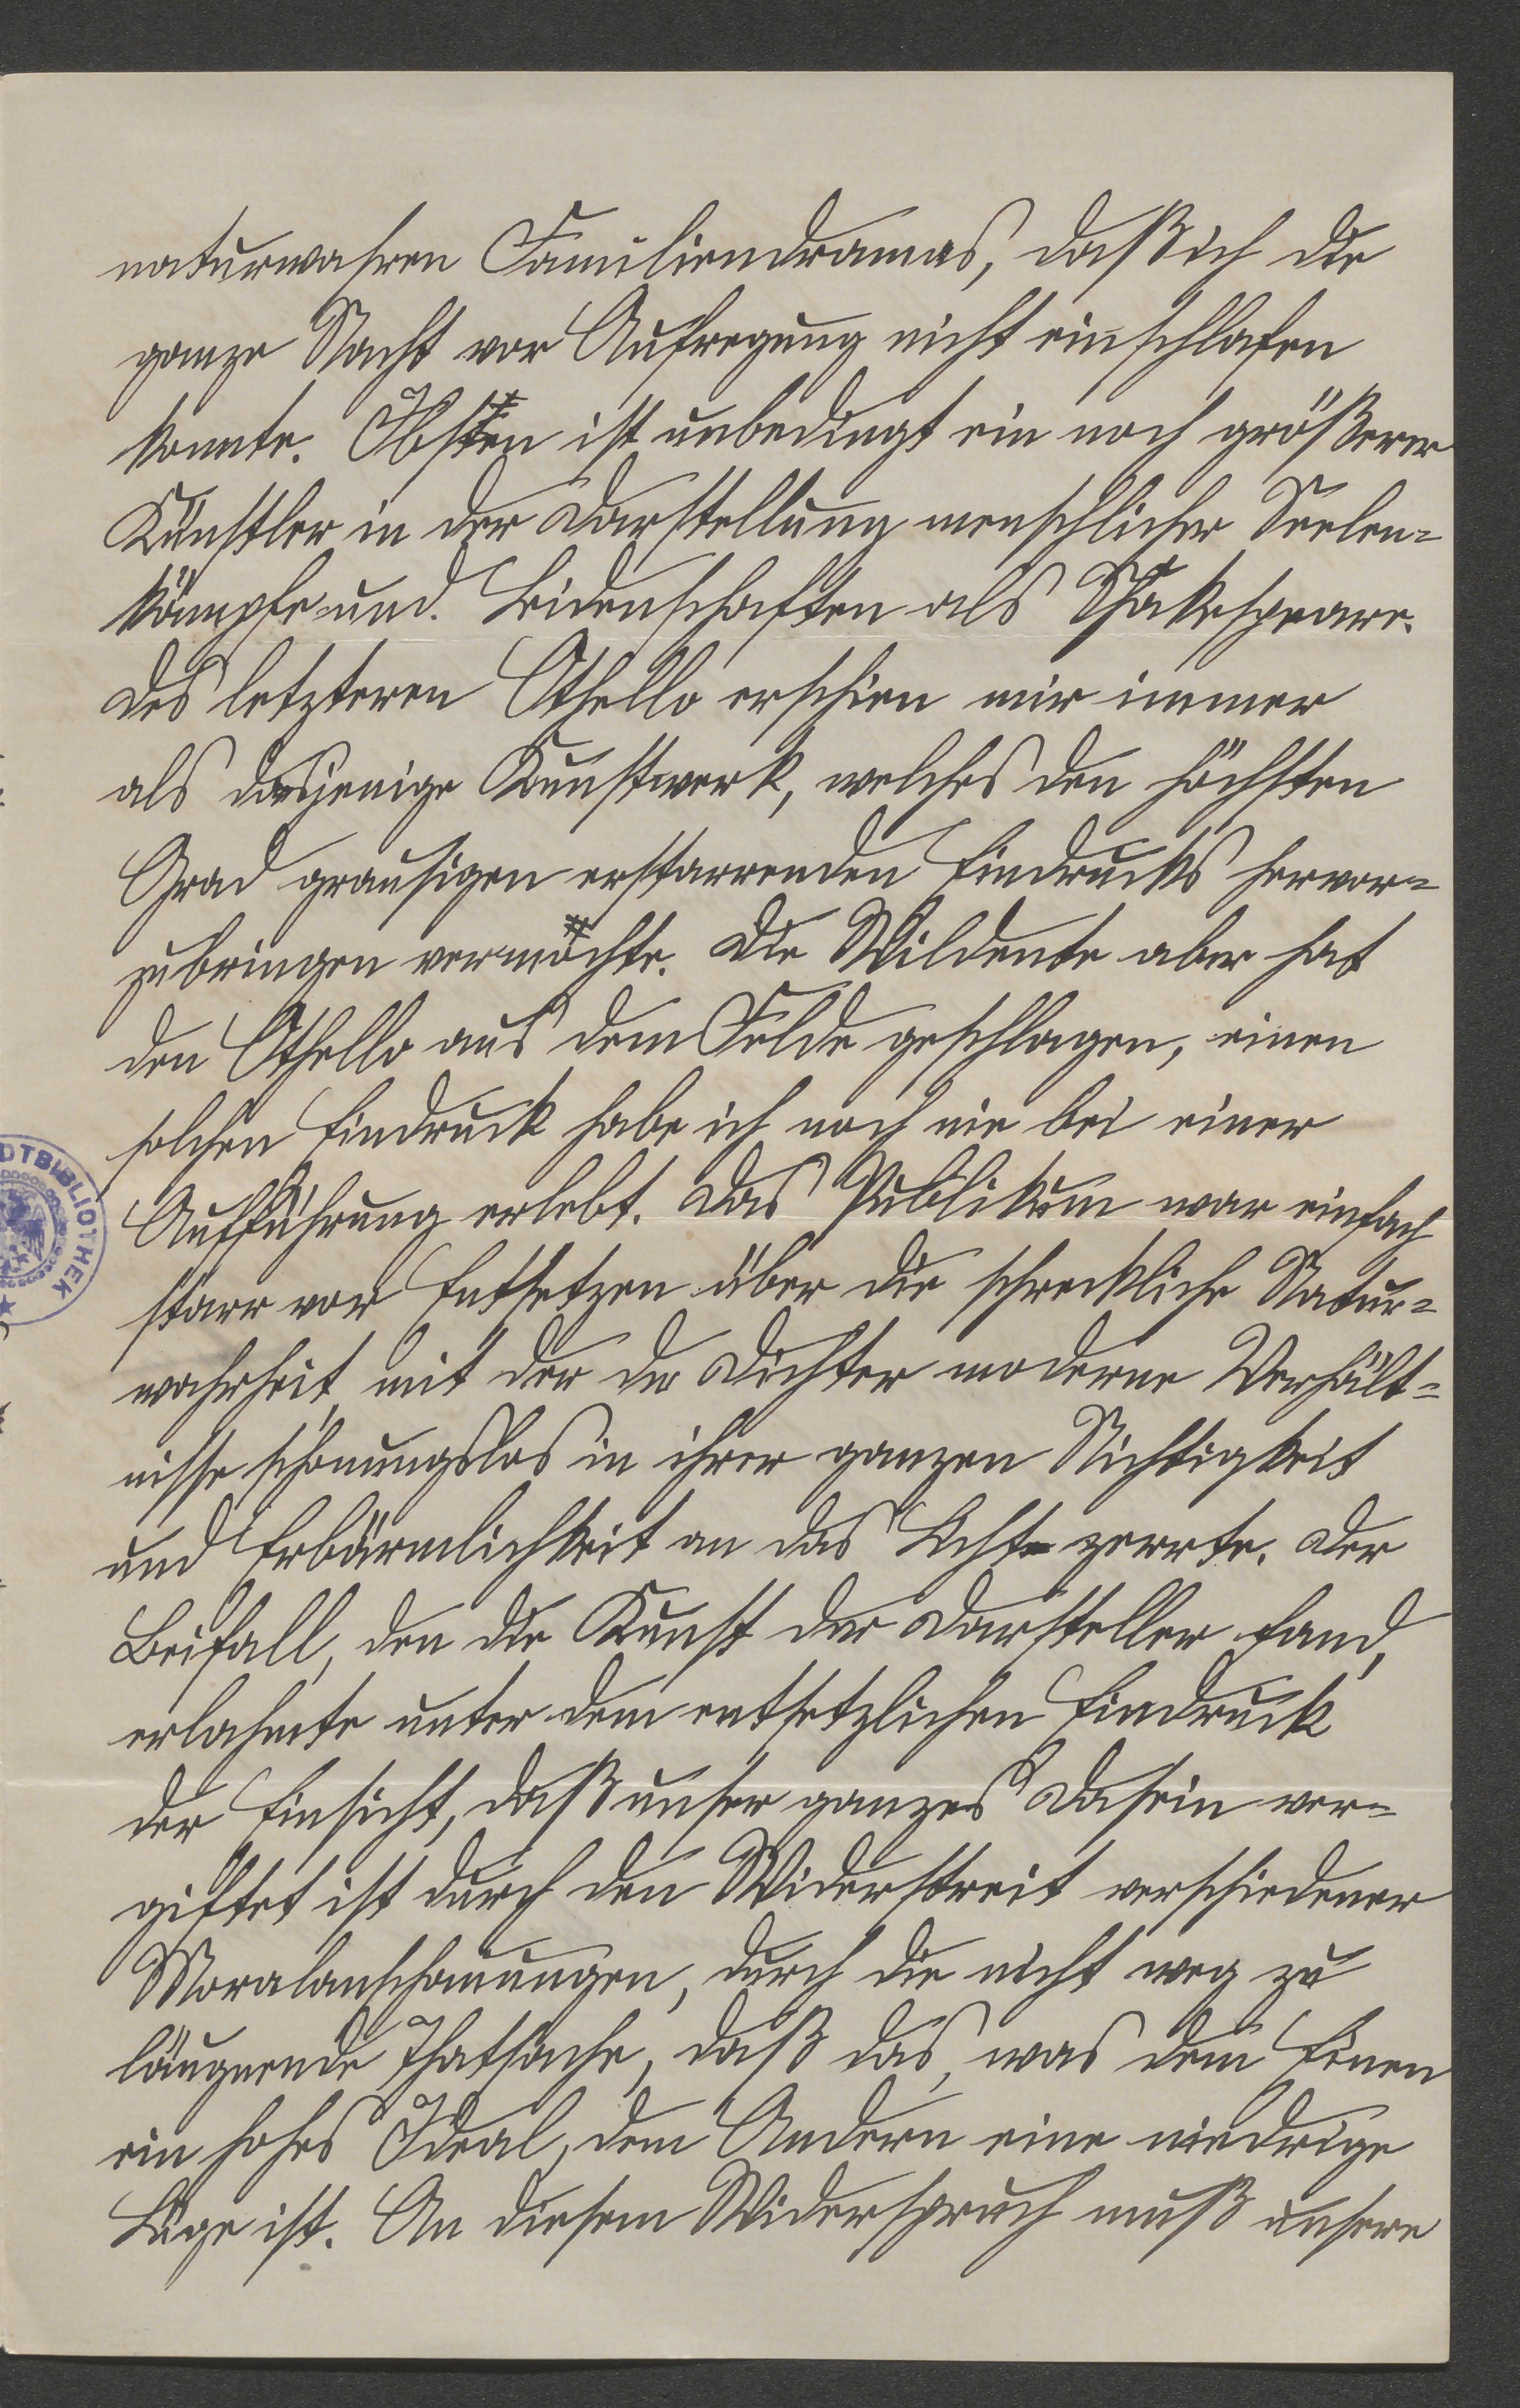 naturwahren Familiendramas, daß ich die
ganze Nacht vor Aufregung nicht einschlafen
konnte. Ibsen ist unbedingt ein noch größerer
Künstler in der Darstellung menschlicher Seelen=
kämpfe und Leidenschaften als Shakespeare.
Des letzteren Othello erschien mir immer
als dasjenige Kunstwerk, welches den höchsten
Grad grausigen erstarrenden Eindrucks hervor=
zubringen vermochte. Die Wildente aber hat
den Othello aus dem Felde geschlagen, einen
solchen Eindruck habe ich noch nie bei einer
Aufführung erlebt. Das Publikum war einfach
starr vor Entsetzen über die schreckliche Natur=
wahrheit, mit der der Dichter moderne Verhält=
nisse schonungslos in ihrer ganzen Nichtigkeit
und Erbärmlichkeit an das Licht zerrte. Der
Beifall, den die Kunst der Darsteller fand,
erlahmte unter dem entsetzlichen Eindruck
der Einsicht, daß unser ganzes Dasein ver=
giftet ist durch den Widerstreit verschiedener
Moralanschauungen, durch die nicht weg zu
läugnende Thatsache, daß das, was dem Einen
ein hohes Ideal, dem Andern eine niedrige
Lüge ist. An diesem Widerspruch muß unsere
DTBIBLIOTHEK